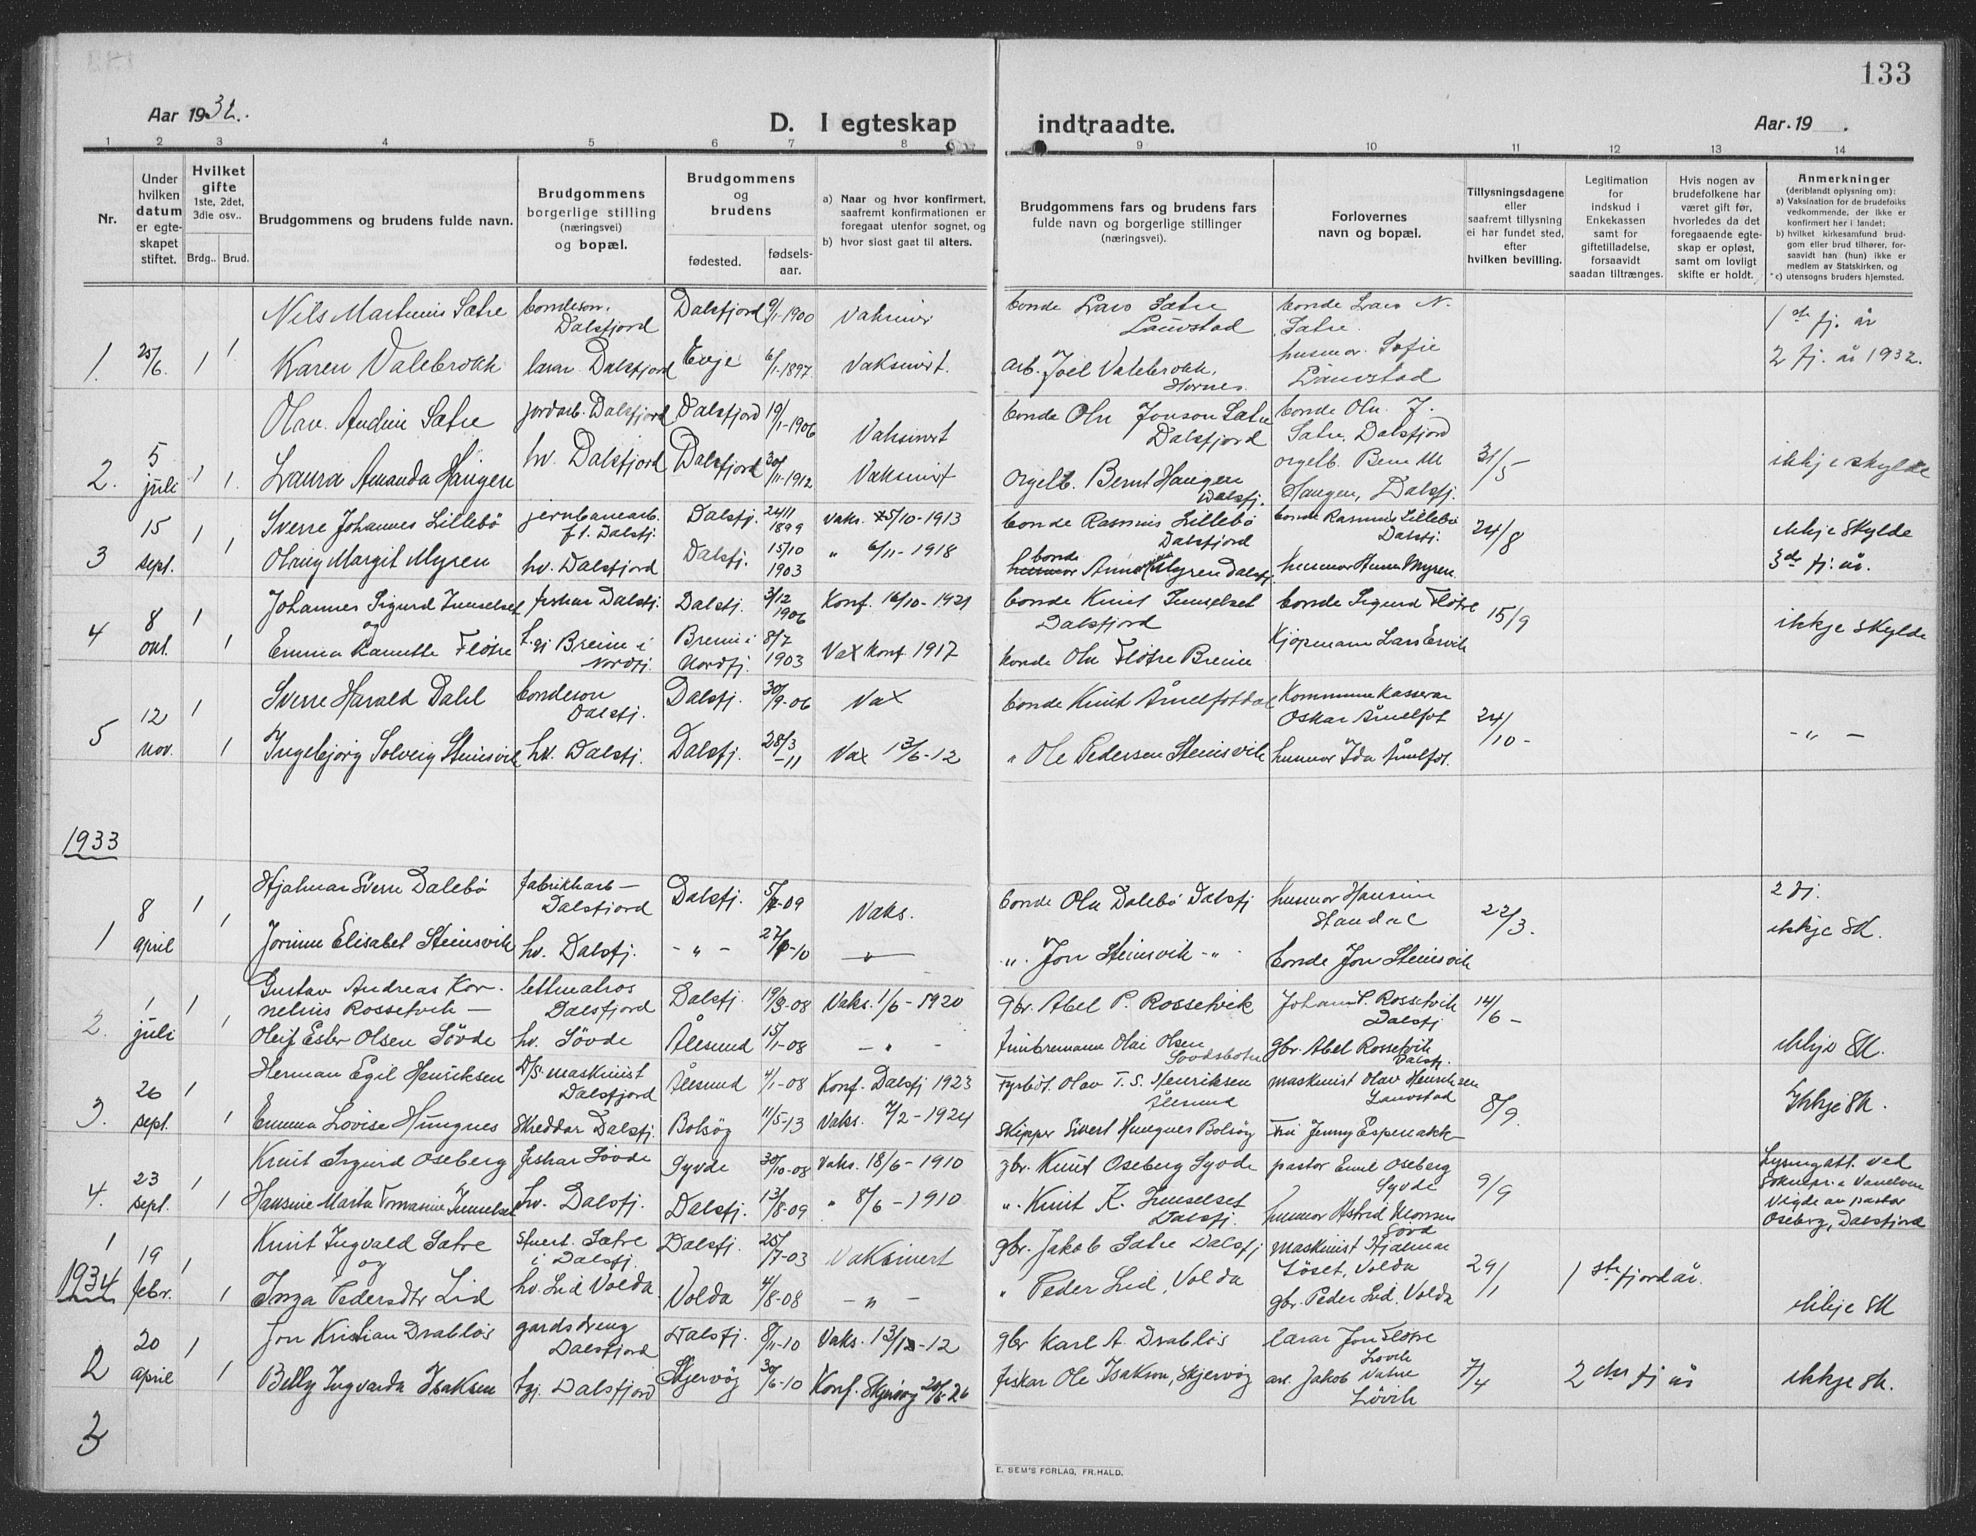 133
Aar 1932.
D. I egteskap indtraadte.
Aar. 19 .
1 2 3 4 5 6 7 8 9 10 11 12 13 14
Nr.
Under hvilken datum er egteskapet stiftet.
Hvilket gifte 1ste, 2det, 3die osv..
Brdg.. Brud.
Brudgommens og brudens fulde navn.
Brudgommens borgerlige stilling (næringsvei) og bopæl.
Brudgommens og brudens
fødested.
fødselsaar.
a) Naar og hvor konfirmert, saafremt konfirmationen er foregaat utenfor sognet, og
b) hvor siost gaat til alters.
Brudgommens fars og brudens fars fulde navn og borgerlige stillinger (næringsvei).
Forlovernes navn og bopæl.
Tillysningsdagene eller saafremt tillysning ei har fundet sted, efter hvilken bevilling.
Legitimation for indskud i Enkekassen samt for giftetilladelse, forsaavidt saadan tiltrænges.
Hvis nogen av brudefolkene har været gift før, hvorledes da det foregaaende egteskap er opløst, samt om lovligt skifte er holdt.
Anmerkninger (deriblandt oplysning om):
a) Vaksination for de brudefolks vedkommende, der ikke er konfirmert her i landet;
b) hvilket kirkesamfund brudgom eller brud tilhører, forsaavidt han (hun) ikke er medlem av Statskirken, og
c) utensogns bruders hjemsted.
Nils Martinus Sætre bondeson. Dalsfjord Dalsfjord 9/1-1900 Vaksiner bonde Lars Sætre Lauvstad bonde Lars N. Sætre. 1ste fj. år
1. 25/6. 1 1 Karen Valebrokk lærar Dalsfjord Evje 6/1-1897. Vaksinert. arb. Joel Valebrokk, Hornes. husmor. Sofie Lauvstad 2 fj. år 1932.
Olav Andein Sætre jordarb. Dalsfjord Dalsfjord 19/1-1906 Vaksinert bonde Ole Jonson Sætre Dalsfjord bonde Ole J. Sætre, Dalsfjord
2. 5 juli 1 1. Laura Amanda Haugen hv. Dalsfjord Dalsfjord 30/11-1912 Vaksinert orgelb. Bernt Haugen Dalsfj. orgelb. Bern M Haugen, Dalsfj. 31/5 ikkje skylde
15 1 Sverre Johannes Lillebø jernbanearb. f.t. Dalsfj. Dalsfj. 24/11 1899 Vaks. 5/10-1913 bonde Rasmus Lillebø Dalsfjord bonde Rasmus Lillebø Dalsfj. 24/8 ikkje skylde
3 sept. 1 Olaug Margit Myren hv. Dalsfjord Dalsfj. 15/10 1903 " 6/11-1918 bonde Myren Dalsfj. husmor Anna Myren. 3de fj. år.
8 1 Johannes Sigurd Innselset og fiskar Dalsfj. Dalsfj. 3/12 1906 Konf. 16/10-1921 bonde Knut Innselset Dalsfjord bonde Sigurd Fløtre 15/9 ikkje skylde
4 okt. 1 Emma Fløtre Breim i Nordfj. Breim i Nordfj. 8/7 1903 Vax konf. 1917 bonde Ole Fløtre Breim Kjøpmann Lars Ervik
12 1 Sverre Harald Dahl bondeson Dalsfj. Dalsfj. 30/9-06 Vax bonde Knut Åmelfotdal Kommunekasserar Oskar Åmelfot 24/10-
5 nov. 1 Ingebjørg Solveig Steinsvik hv. Dalsfj. Dalsfj. 28/3-11 Vax 13/6-12 " Ole Pedersen Steinsvik husmor Ida Åmelfot. - " -
1933
8 1 Hjalmar Sverre Dalebø fabrikkarb- Dalsfjord Dalsfj. -09 Vaks. bonde Ole Dalebø Dalsfj husmor Hansine Standal 22/3. 2 fj.
1 april 1 Jorunn Elisabet Steinsvik hv. Dalsfj. - " - -10 " ". Jon Steinsvik -" bonde Jon Steinsvik ikkje sk.
1 1 Gustav Andreas Kornelius Rossetvik- lettmatros Dalsfjord Dalsfj. 19/3-08 Vaks. 1/6-1920 gbr. Abel P. Rossetvik Johan P. Rossetvik Dalsfj 14/6-
2. juli 1 Olsen Søvde hv. Søvde Ålesund 15/1-08 - " - Olai Olsen gbr. Abel Rossetvik Dalsfj. ikkje sk.
26 1 Herman Egil Henriksen D/S-maskinist Dalsfjord Ålesund 4/1-08 Konf. Dalsfj 1923 Fyrbøt. Olav T. S. Henriksen Ålesund maskinist Olav Henriksen Lauvstad 8/9. Ikkje sk.
3. sept. 1 Emma Lovise Hungnes Skreddar Dalsfj. Bolsøy 11/5-13 Vaks. 7/2-1924 Skipper Sivert Hungnes Bolsøy Fru Jenny Espenakk
23 1 Knut Sigurd Oseberg fiskar Søvde Syvde 30/10-08 Vaks. 18/6-1910 gbr. Knut Oseberg Syvde pastor Emil Oseberg Syvde 9/9 Lysingatt. ved Vanelven
4. sept. 1 Hansine Marta Tomasine Innselset hv. Dalsfj. Dalsfj. 13/8-09 " 8/6-1910 ". Knut K. Innselset Dalsfj. husmor Astrid Vigde av pastor Oseberg, Dalsfjord
1 19 1 Knut Ingvald Sætre og Sætre i Dalsfj. Dalsfj. 25/7-03 Vaksinert gbr. Jakob Sætre Dalsfj maskinist Hjalmar Løset, Volda 29/1 1ste fjordår.
1934 febr. 1 Inga Pedersdtr Lid hv. Lid Volda Volda 4/8-08 - " - " Peder Lid, Volda gbr. Peder Lid, Volda ikkje sk
20 1 Jon Kristian Drabløs gardsdreng Dalsfjord Dalsfj. 8/11-10 Vaks. -12 gbr Karl A. Drabløs lærar Jon Fløtre Løvik 7/4 2den fj år ikkje sk.
2 april 1 Betty Ingvarda Isaksen tgj. Dalsfjord Skjervøy 30/6-10 Konf. Skjervøy -26 fiskar Ole Isaksen, Skjervøy arb. Jakob Vatne Løvik
3
E. SEM'S FORLAG, FR.HALD.